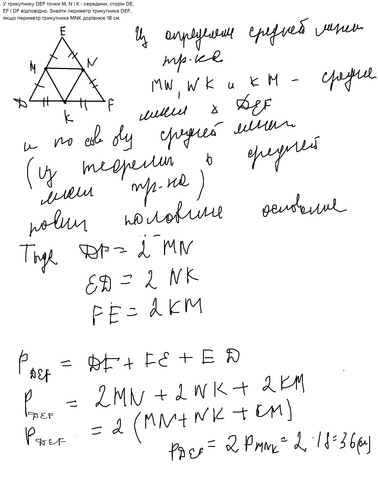 У трикутнику DEF точки М, N і К - середини, сторін DE,
EF і DF відповідно. Знайти периметр трикутника DEF,
якщо периметр трикутника MNK дорівнює 18 см.
E
M
N
D
K
F
Из определения средней линии
тр-ка
MN, NK и KM - средние
линии Δ DEF
и по св-ву средней линии
(из теоремы о средней
линии тр-ка)
равны половине основания
Тогда DF = 2 MN
ED = 2 NK
FE = 2 KM
P DEF = DF + FE + ED
P DEF = 2MN + 2NK + 2KM
P DEF = 2 (MN + NK + KM)
P DEF = 2 P MNK = 2 · 18 = 36 (см)